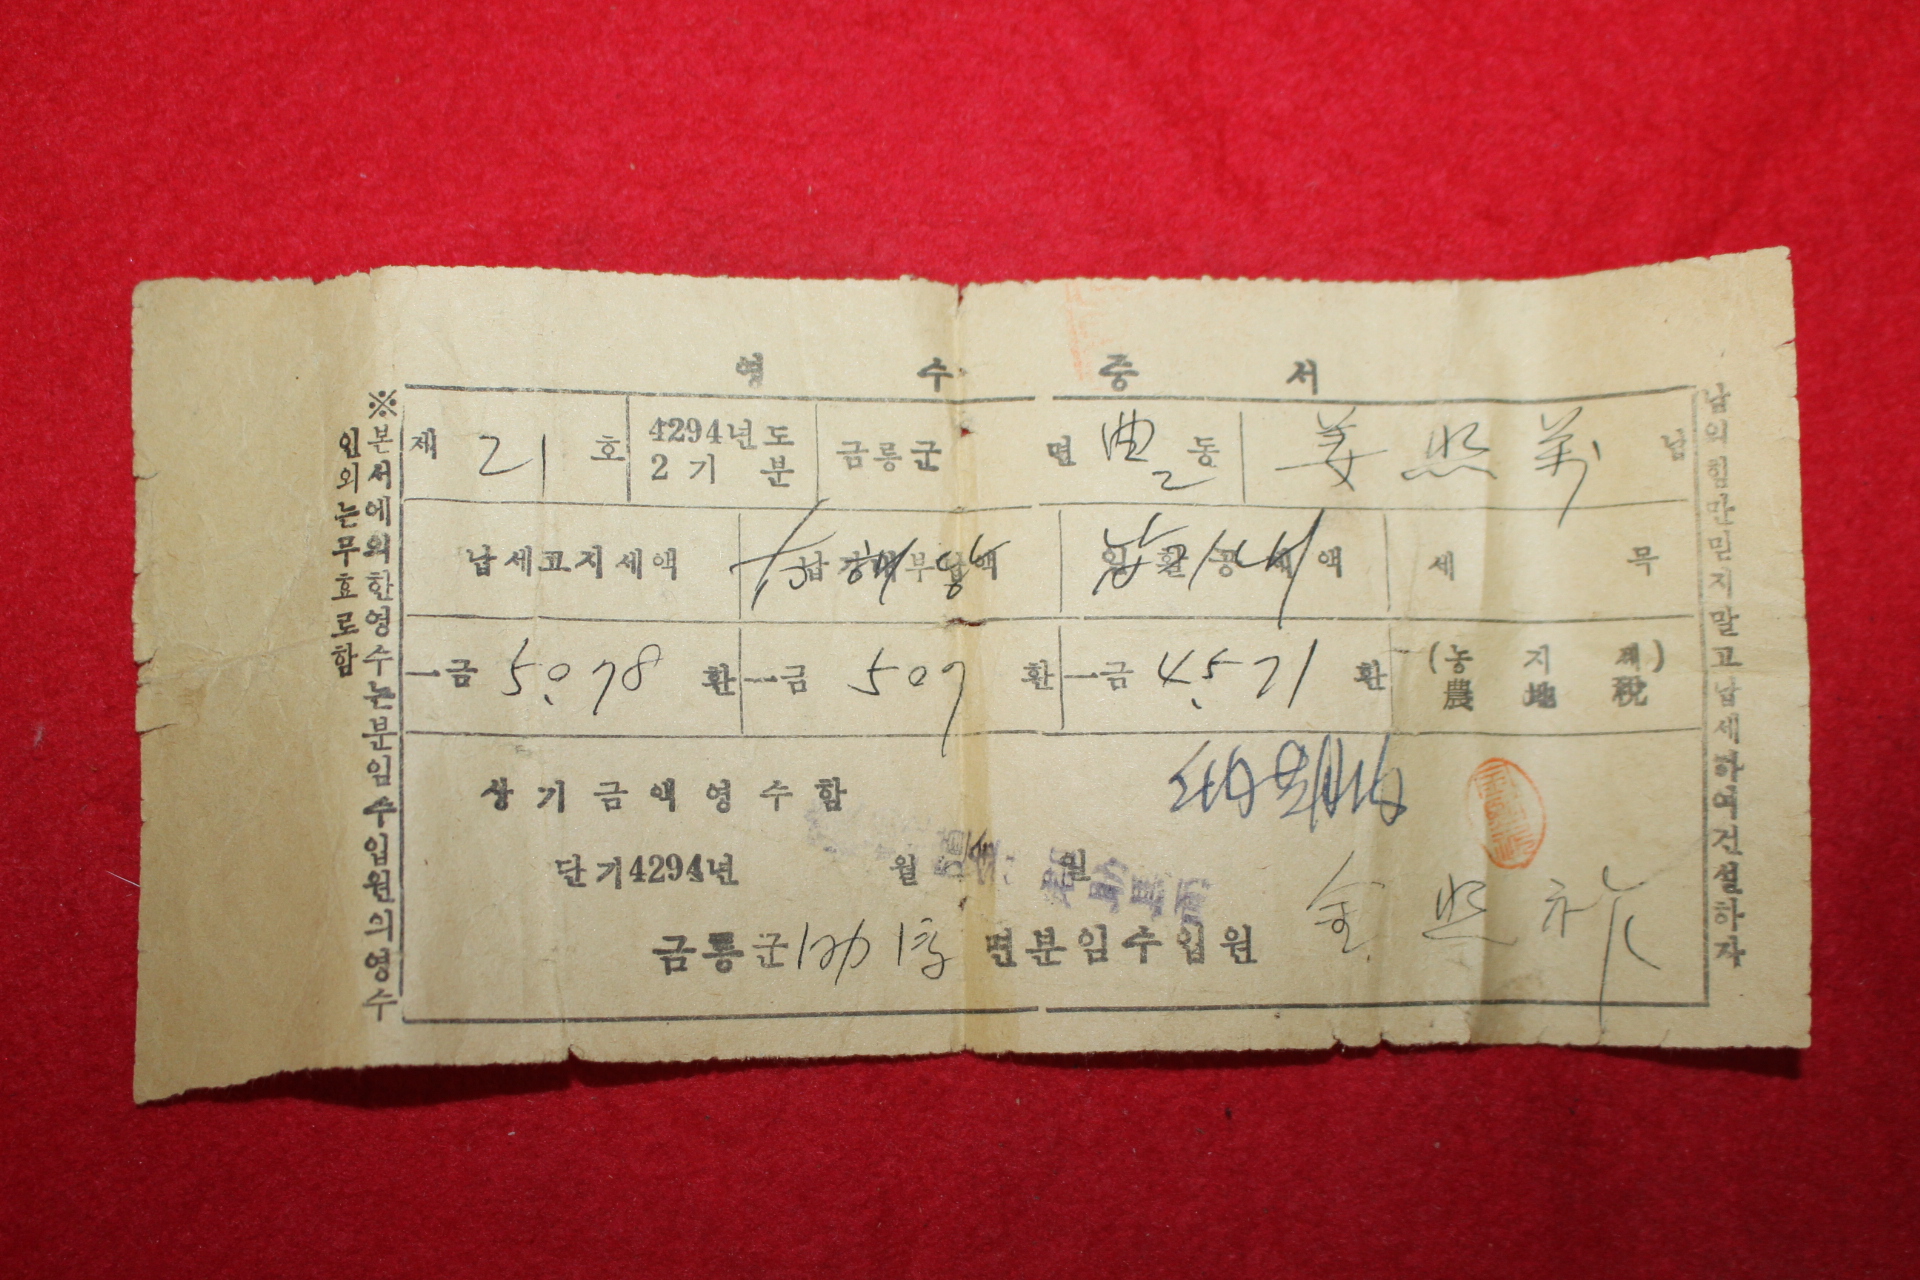 영 수 증 서
제 21 호
4294년도
2 기 분
금릉군 면 동
姜 照 萬 납
납세고지세액
액
세 목
一금 5.078 환
一금 509 환
一금 4.571 환
(농 지 세)
農 地 税
상 기 금 액 영 수 함
단기4294년 월 일
금릉군 면분임수입원 金 照
※본서에의한영수는분임수입원의영수
인외는무효로함
납의힘만민지말고납세하여건설하자